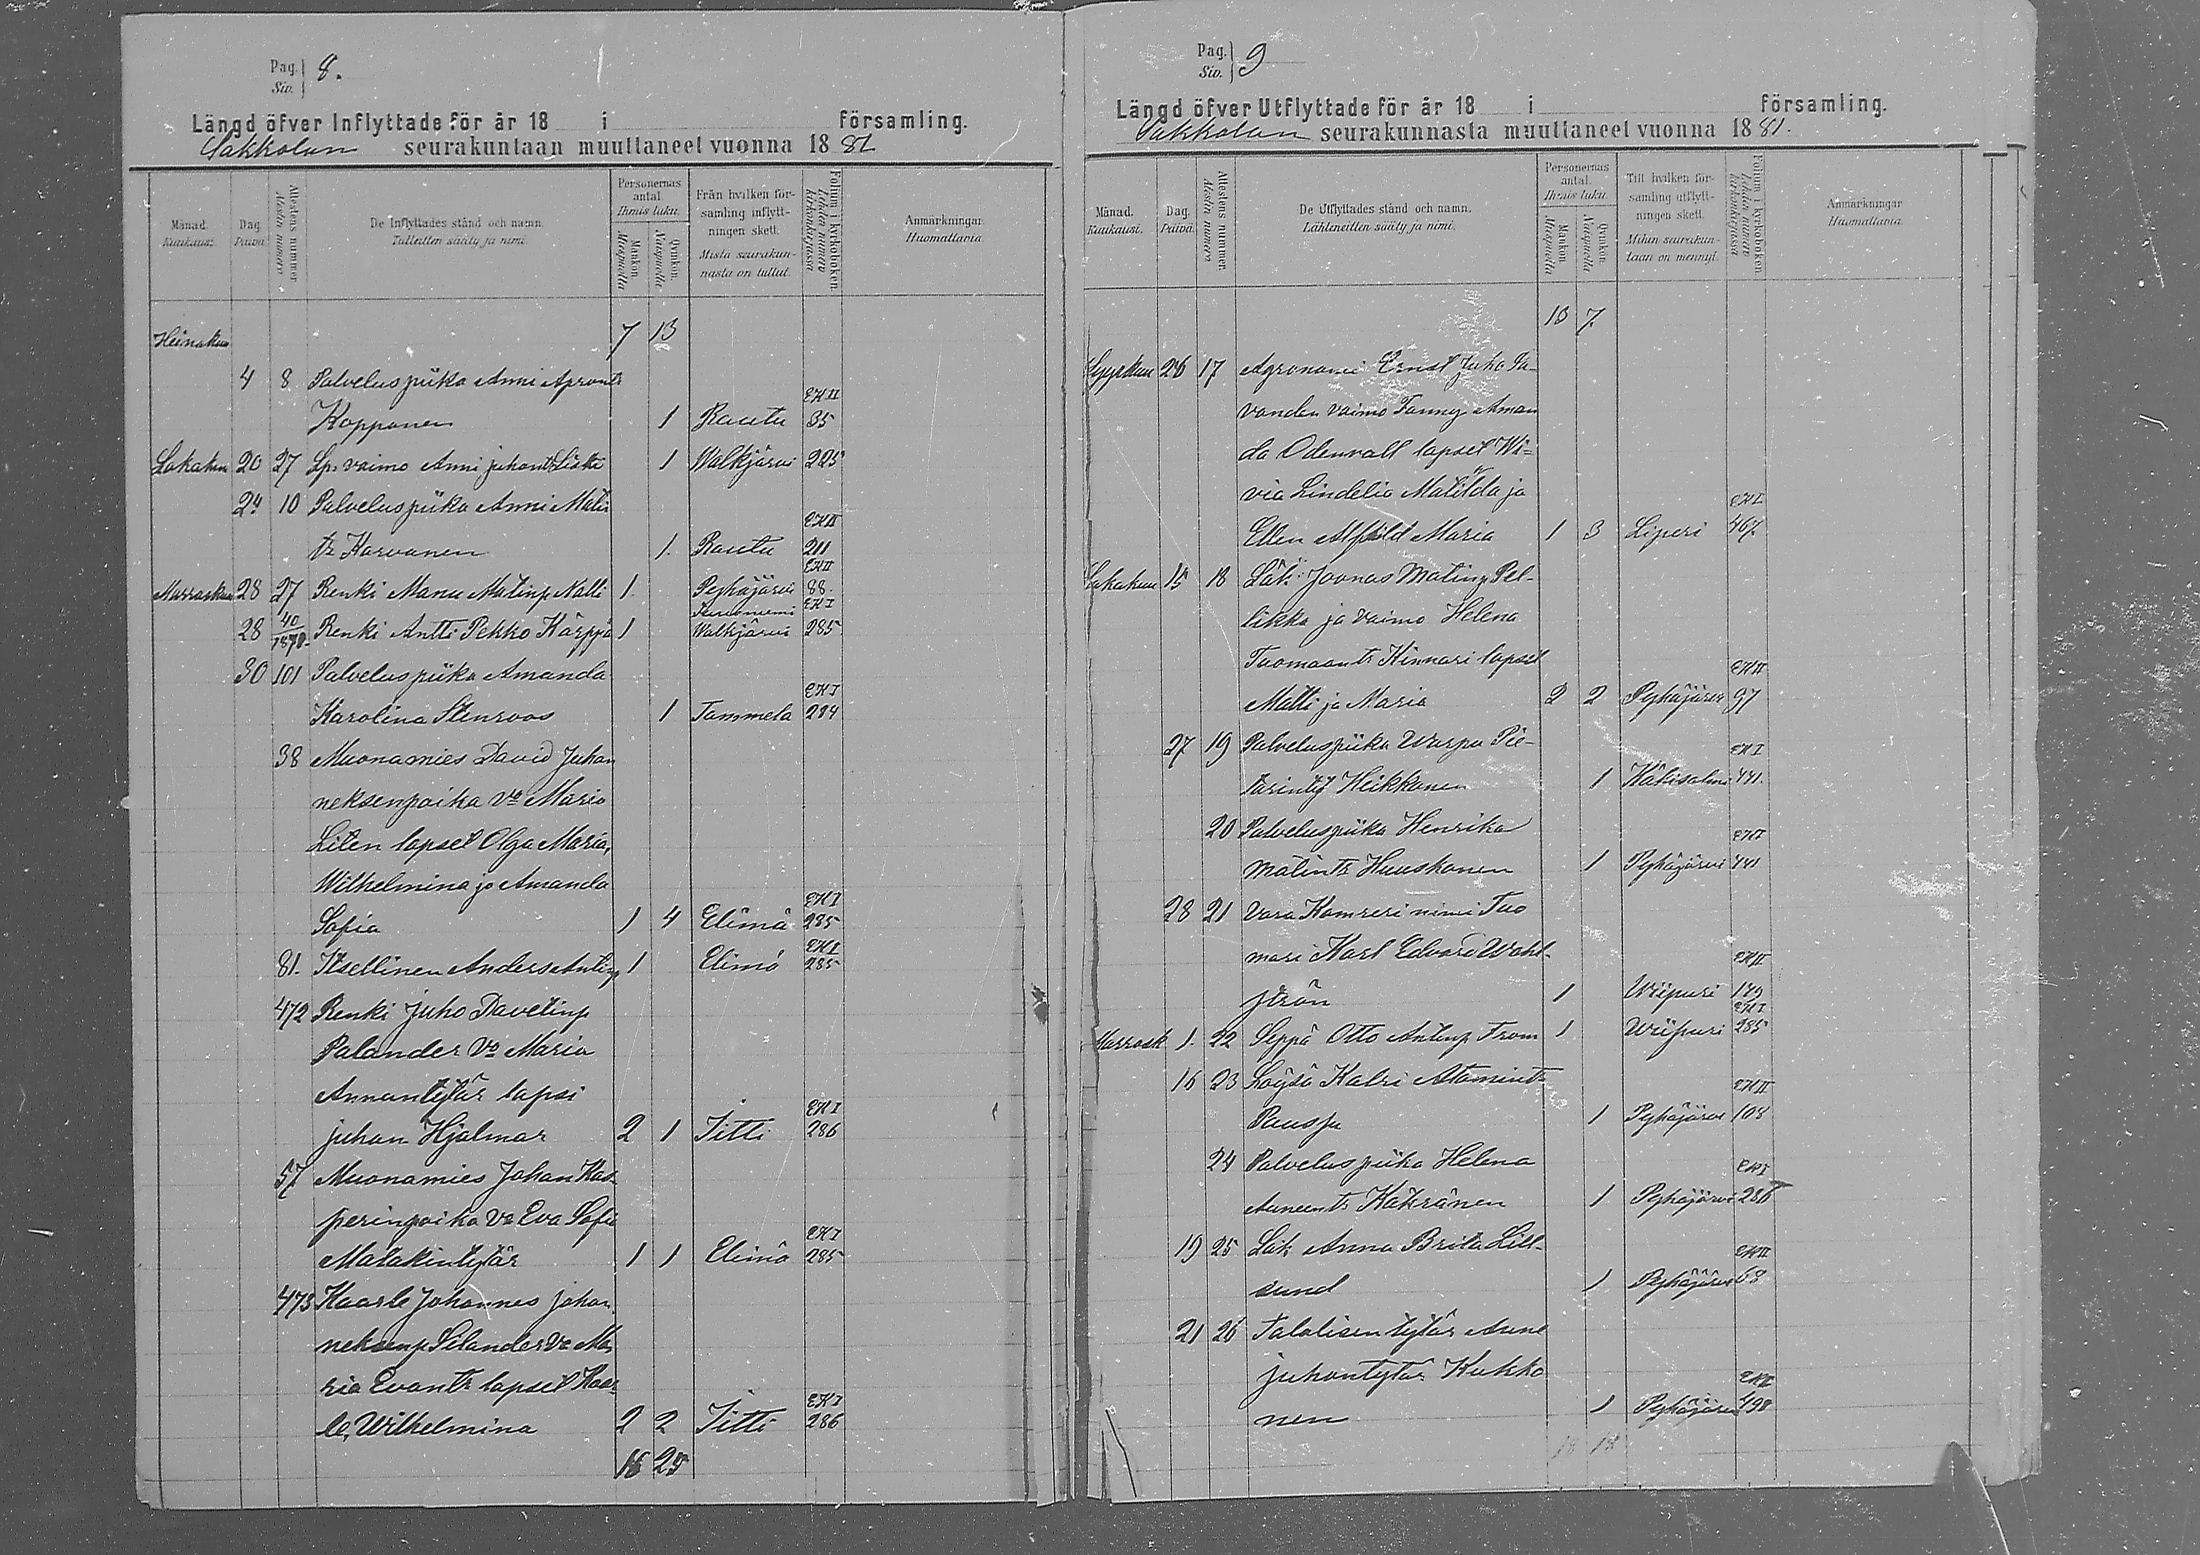 Pag. 8.
Siv.
Längd öfver Inflyttade för år 18 i församling.
Sakkolan seurakuntaan muuttaneet vuonna 1881
Månad. Kuukausi.
Dag. Päivä.
Attestens nummer. Atestin numero
De Inflyttades stånd och namn. Tulleitten sääty ja nimi.
Personernas antal. Ihmis luku.
Mankön. Miespuolia
Qvinkön. Naispuolia
Från hvilken församling inflyttningen skett. Mistä seurakunnasta on tullut.
Folium i kyrkoboken. Lehden numero kirkonkirjassa
Anmärkningar. Huomattavia.
Heinakuu 7 13
4 8 Palveluspiika Anni Apronts
EK II
Kopponen 1 Rautu 35
Lokakuu 20 27 Lp. vaimo Anni juhonts Liski 1 Walkjärvi 225
24 10 Palveluspiika Anni Matin
EK II
tr Karvanen 1 Rautu 211
EK II
Marraskuu 28 27 Renki Manu Matinp Nalli 1 Pyhäjärvi 88.
EK I
28 40/1878 Renki Antti Pekko Kärppä 1 Walkjärvi 285
30 101 Palveluspiika Amanda
EK I
Karolina Stenroos 1 Tammela 284
38 Muonamies David Juhan
neksenpoika Vo Maria
Liten lapset Olga Maria,
Wilhelmina ja Amanda
EK I
Sofia 1 4 Elimä 285
EK I
81. Itsellinen Anders Antinp 1 Elimä 285
472 Renki Juho Davetinp
Palander Vo Maria
Annantytär lapsi
EK I
juhan Hjalmar 2 1 Jitti 286
57 Muonamies Johan Kas-
perinpoika Vo Eva Sofia
EK I
Matakintytär 1 1 Elimä 285
473 Kaarle Johannes johan
neksenp Silander Vo Ma
ria Evants lapset Kaar
EK I
le, Wilhelmina 2 2 Jitti 286
16 25
Pag. 9
Siv.
Längd öfver Utflyttade för år 18 i församling.
Sakkolan seurakunnasta muuttaneet vuonna 1881.
Månad. Kuukausi.
Dag. Päivä.
Attestens nummer. Atestin numero
De Utflyttades stånd och namn. Lähteneitten sääty ja nimi.
Personernas antal. Ihmis luku.
Mankön. Miespuolia
Qvinkön. Naispuolia
Till hvilken församling utflyttningen skett. Mihin seurakuntaan on mennyt.
Folium i kyrkoboken. Lehden numero kirkonkirjassa
Anmärkningar Huomattavia.
10 7.
Syyskuu 26 17 Agronomi Ernst Juho Sa-
vander vaimo Fanny Aman
da Odenvall lapset Wi-
via Lindelia Matilda ja
EK I
Ellen Alfhild Maria 1 3 Liperi 467.
Lokakuu 15 18 Läk. Joonas Matinp Pel-
likka ja vaimo Helena
Tuomaants Kinnari lapset
EK II
Matti ja Maria 2 2 Pyhäjärvi 97
27 19 Palveluspiika Warpu Pie-
EK I
tarinty Heikkonen 1 Käkisalmi 441.
20 Palveluspiika Henrika
EK I
Matints Huuskonen 1 Pyhäjärvi 441
28 21 Vara Komreri nimi Tuo
mari Karl Edvard Wahl-
EK II
ström 1 Wiipuri 149
EK I
Marrask 1. 22 Seppä Otto Antinp From 1 Wiipuri 285
16 23 Loysä Katri Atamints
EK II
Puusju 1 Pyhäjärvi 108
24 Palveluspiika Helena
EK I
Auneents Käkränen 1 Pyhäjärvi 286
19 25 Läk Anna Brita Lill-
EK II
sund 1 Pyhäjärvi 68
21 26 Talolisen tytär Aune
juhontytär Kukko
EK II
nen 1 Pyhäjärvi 198
18 18